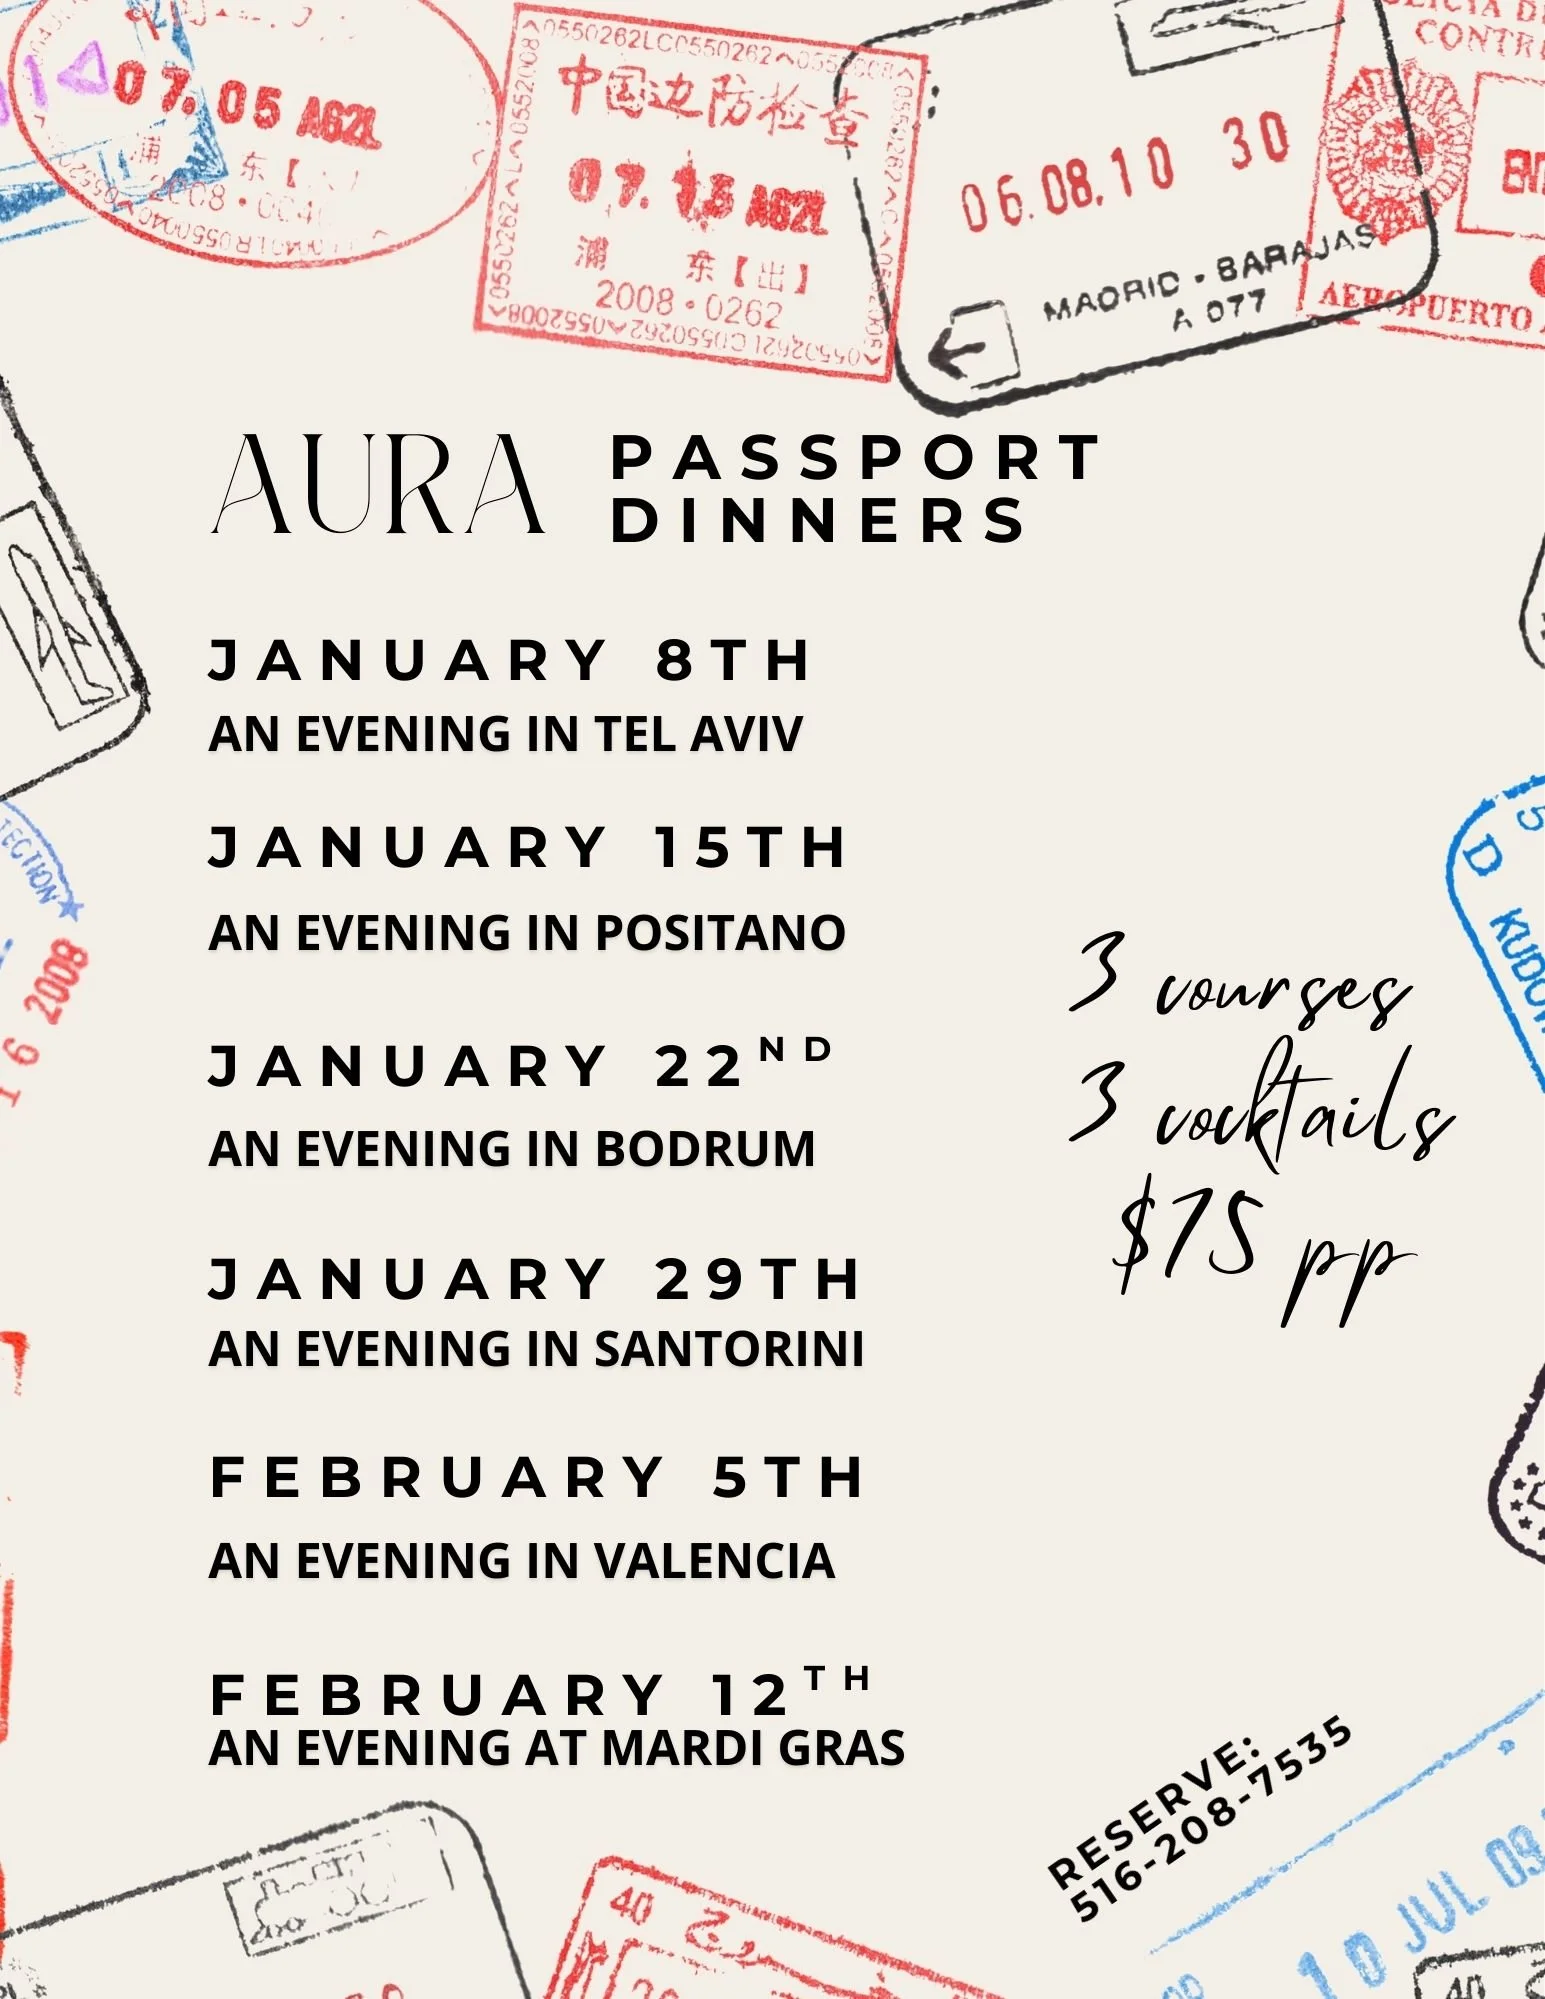 07.05 A62L
浦 东
中国边防检查
07.15 A62L
浦 东【出】
2008·0262
06.08.10 30
MADRID - BARAJAS
A 077
CONTR
AEROPUERTO
AURA PASSPORT
DINNERS
JANUARY 8TH
AN EVENING IN TEL AVIV
JANUARY 15TH
AN EVENING IN POSITANO
JANUARY 22ND
AN EVENING IN BODRUM
JANUARY 29TH
AN EVENING IN SANTORINI
FEBRUARY 5TH
AN EVENING IN VALENCIA
FEBRUARY 12TH
AN EVENING AT MARDI GRAS
3 courses
3 cocktails
$75 pp
RESERVE:
516-208-7535
TECTION
16 2008
D
KUDO
40
10 JUL 09
40